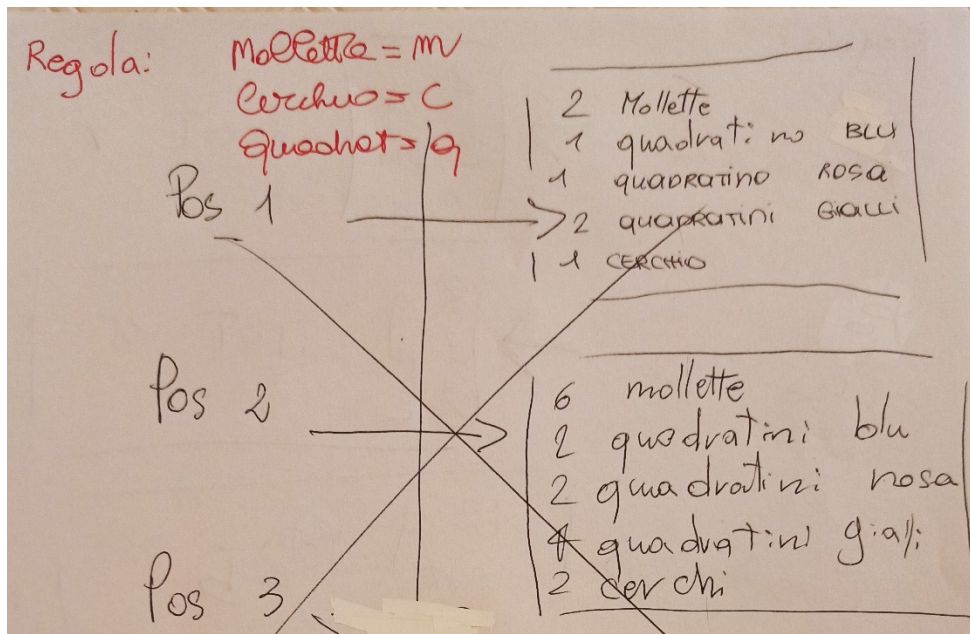 Regola: Mollette = m
Cerchio = C
Quadrat = q
Pos 1
2 Mollette
1 quadratino BLU
1 QUADRATINO ROSA
2 QUADRATINI GIALLI
1 CERCHIO
Pos 2
6 mollette
2 quadratini blu
2 quadratini rosa
4 quadratini gialli
2 cerchi
Pos 3